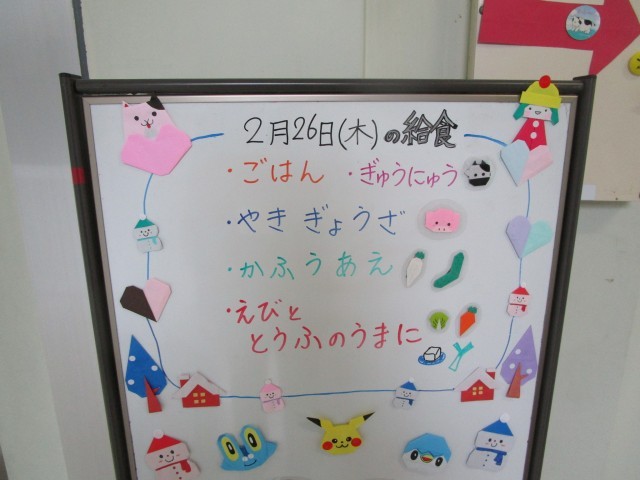 2月26日(木)の給食
・ごはん ・ぎゅうにゅう
・やきぎょうざ
・かふうあえ
・えびと
とうふのうまに